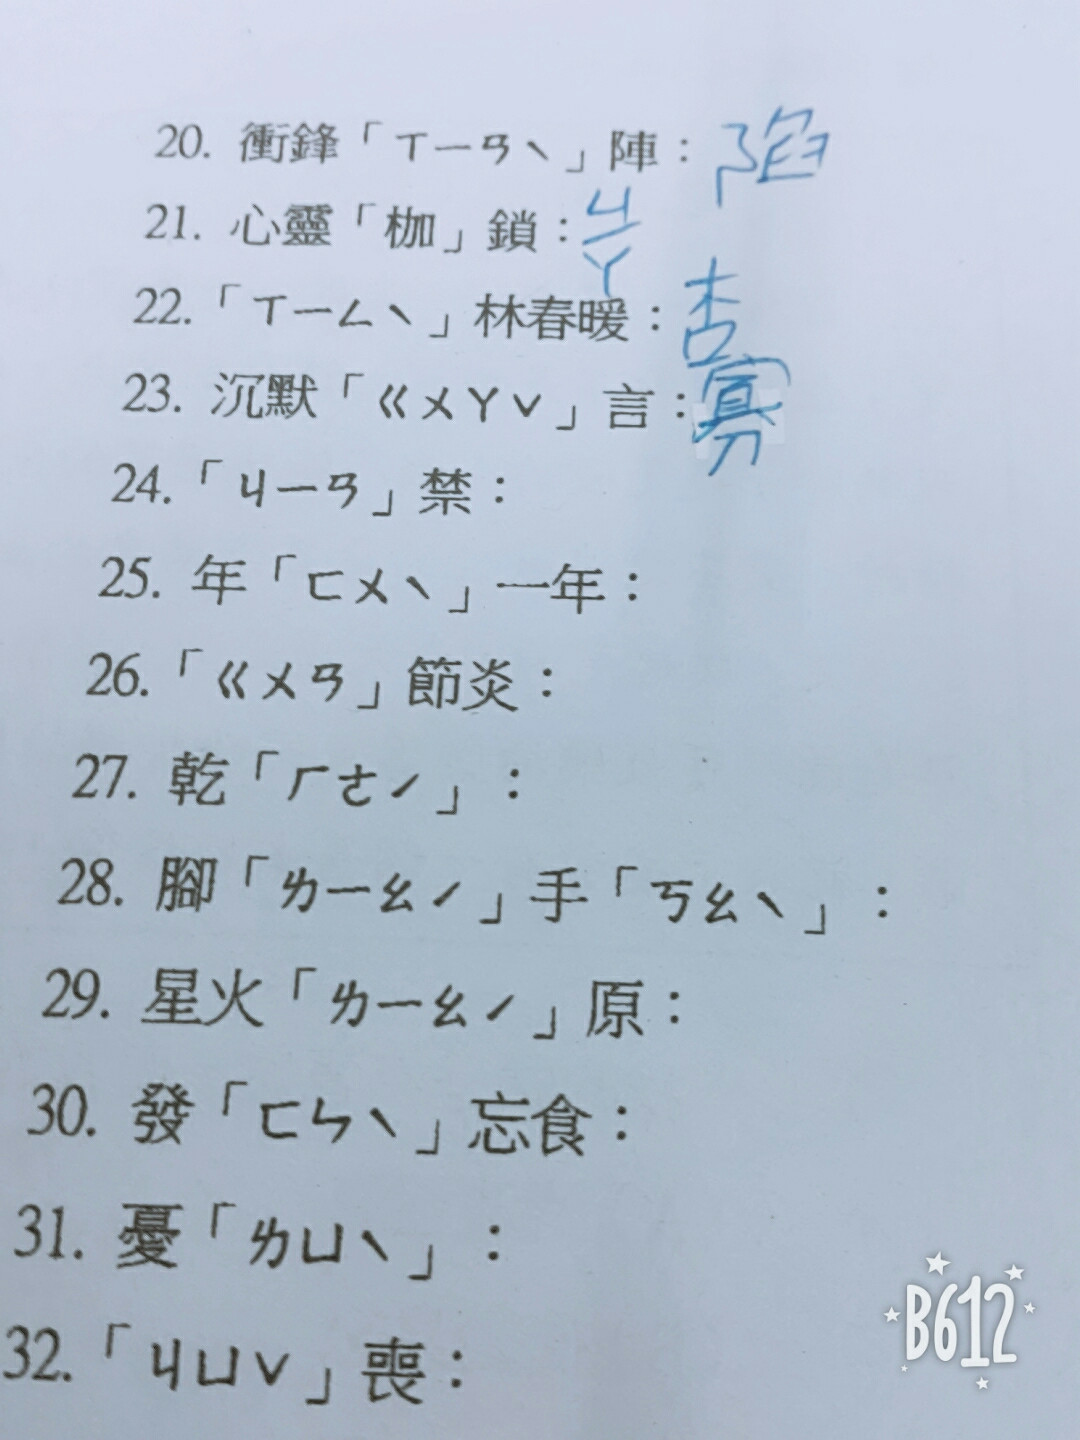 20. 衝鋒「ㄒㄧㄢˋ」陣：陷
21. 心靈「枷」鎖：ㄐㄧㄚ
22.「ㄒㄧㄥˋ」林春暖：杏
23. 沉默「ㄍㄨㄚˇ」言：寡
24.「ㄐㄧㄢ」禁：
25. 年「ㄈㄨˋ」一年：
26.「ㄍㄨㄢ」節炎：
27. 乾「ㄏㄜˊ」：
28. 腳「ㄌㄧㄠˊ」手「ㄎㄠˋ」：
29. 星火「ㄌㄧㄠˊ」原：
30. 發「ㄈㄣˋ」忘食：
31. 憂「ㄌㄩˋ」：
32.「ㄐㄩˇ」喪：
B612